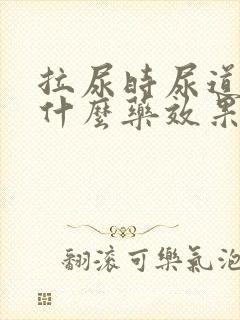 拉尿時尿道
什麼藥效果
翻滚可樂氣泡